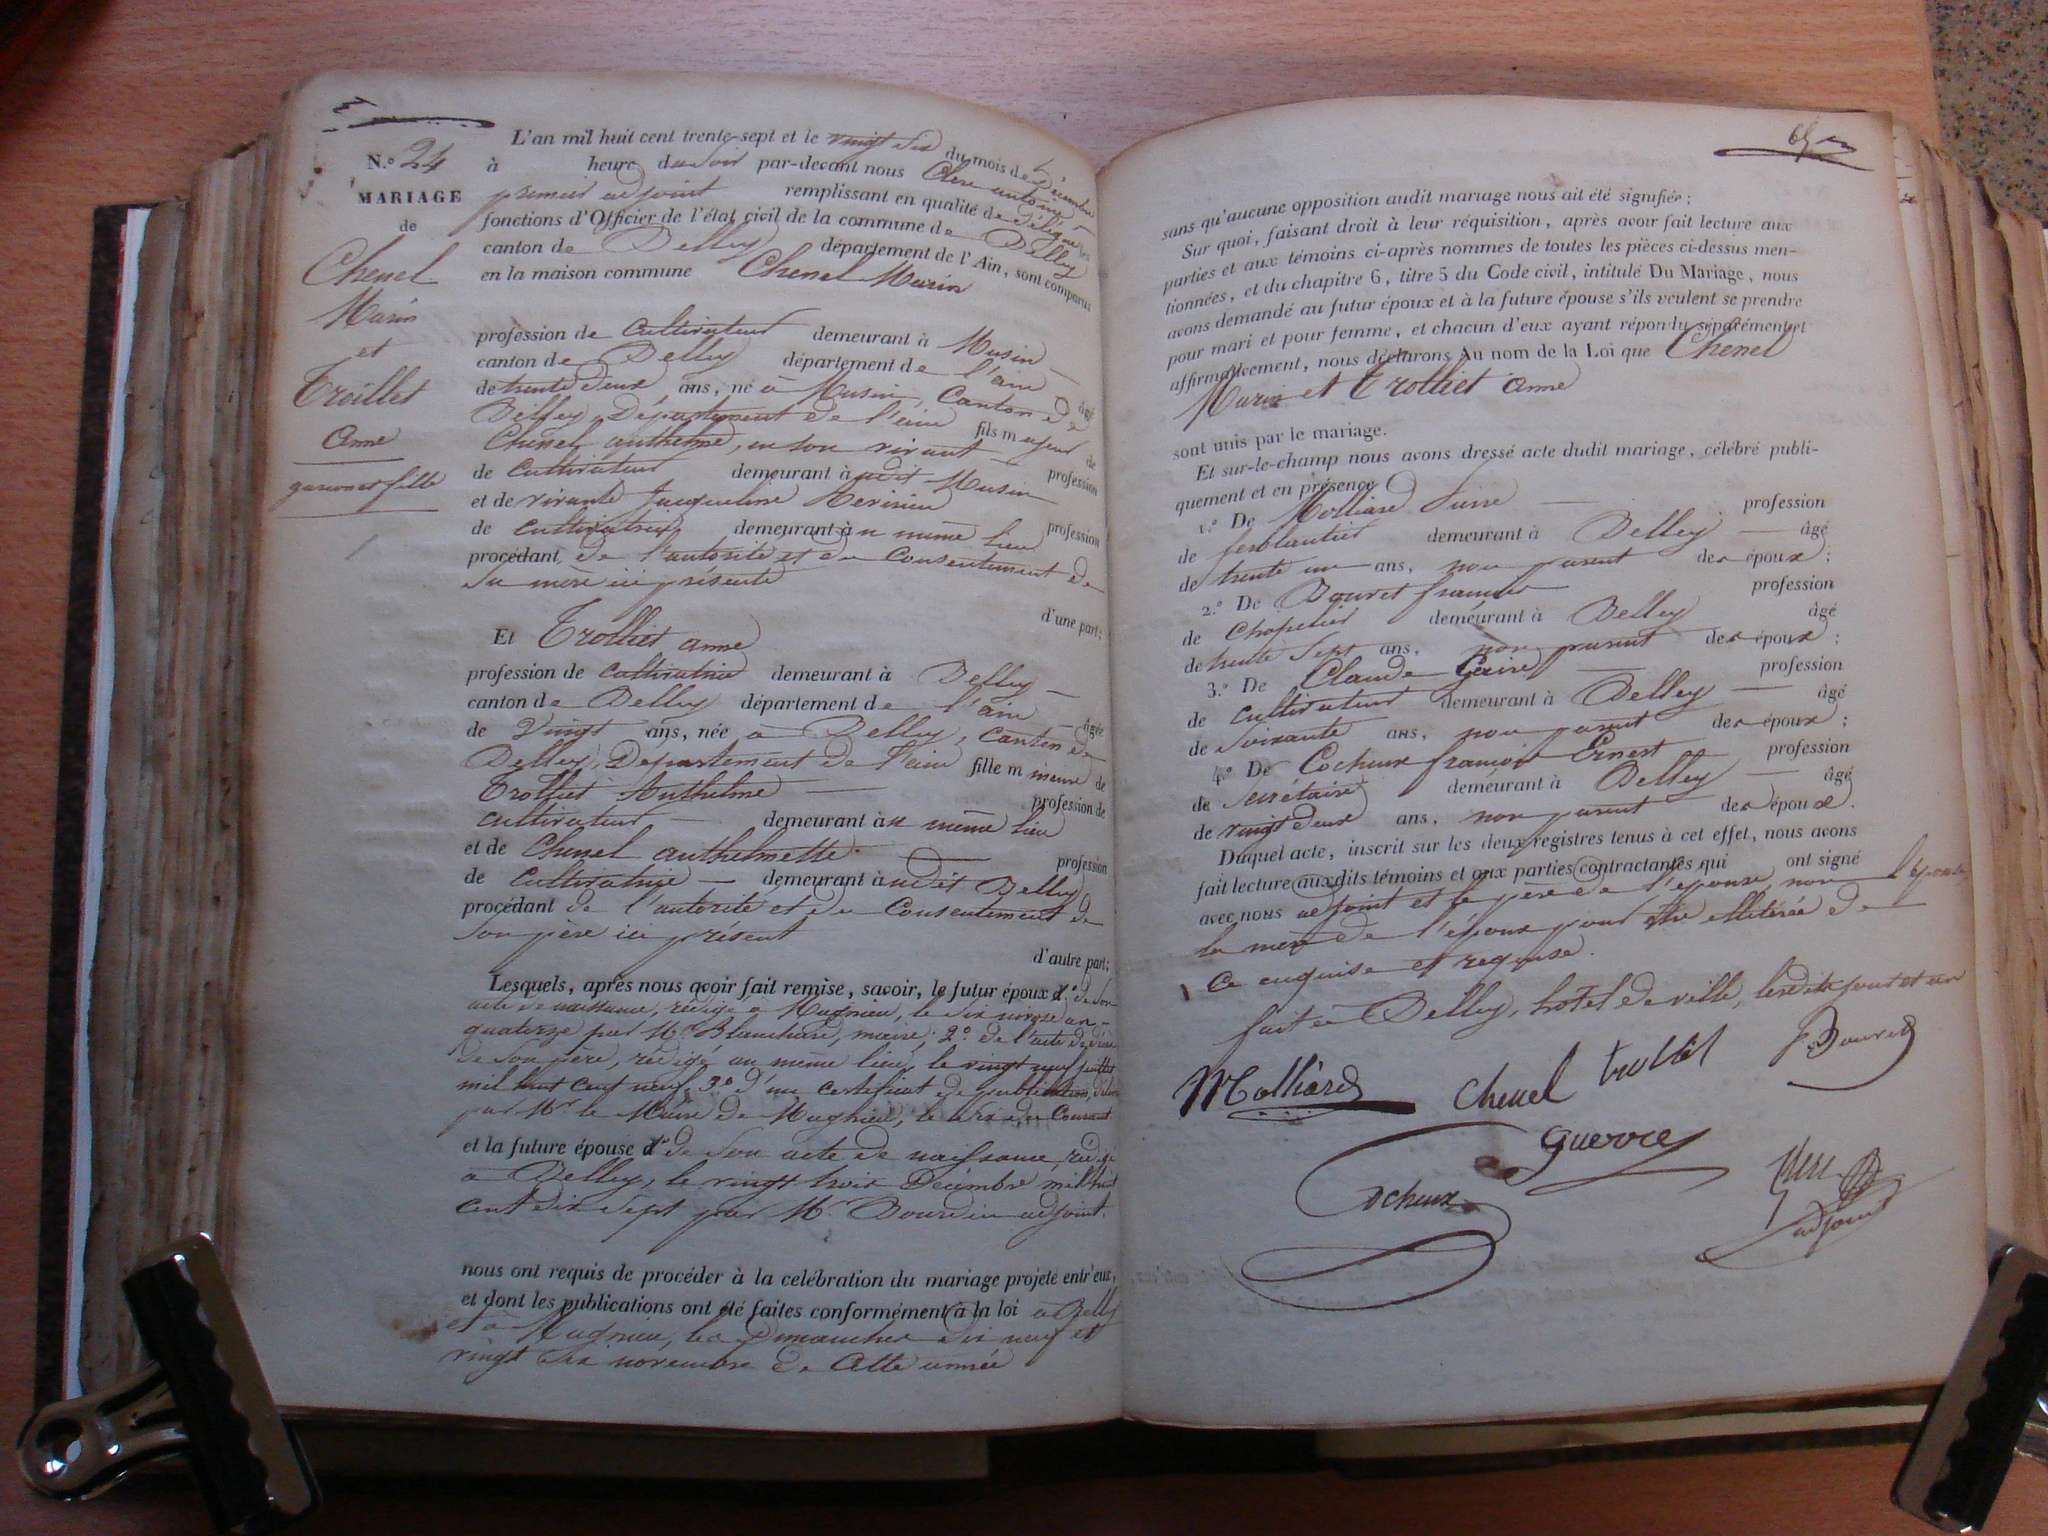 N.o 24
MARIAGE
de
Chenel
Marin
et
Troillet
Anne
garçon et fille
L'an mil huit cent trente-sept et le vingt six du mois de Décembre
à heure du soir par-devant nous Clerc antoine
premier adjoint remplissant en qualité de délégué les
fonctions d'Officier de l'état civil de la commune de Belley
canton de Belley département de l'Ain, sont comparus
en la maison commune Chenel Marin
profession de cultivateur demeurant à Musin
canton de Belley département de l'ain âgé
de trente deux ans, né à Musin, Canton de
Belley, Département de l'ain fils majeur de
Chenel anthelme, en son vivant profession
de cultivateur demeurant à udit Musin
et de vivante Jacqueline profession
de cultivatrice demeurant à u même lieu
procédant de l'autorité et du Consentement de
sa mère ici présente
d'une part;
Et Trolliet anne
profession de cultivatrice demeurant à Belley
canton de Belley département de l'ain âgée
de vingt ans, née à Belley, canton de
Belley, Département de l'ain fille mineure de
Trolliet Anthelme profession de
cultivateur demeurant à u même lieu
et de Chenel anthelmette profession
de cultivatrice demeurant à udit Belley
procédant de l'autorité et du Consentement de
son père ici présent
d'autre part;
Lesquels, après nous avoir fait remise, savoir, le futur époux 1.o de son
acte de naissance, rédigé à Magnieu, le six nivose an
quatorze par Mr Blanchard, maire; 2.o de l'acte de décès
de son père, rédigé au même lieu, le vingt neuf juillet
mil huit cent neuf, 3.o d'un certificat de publication, délivré
par Mr le Maire de Magnieu, le du Courant
et la future épouse 1.o de son acte de naissance, rédigé
à Belley, le vingt trois Décembre mil huit
cent dix sept par Mr. Bourdin adjoint.
nous ont requis de procéder à la celébration du mariage projeté entr'eux,
et dont les publications ont été faites conformément à la loi à Belley
et à Magnieu, les Dimanches dix neuf et
vingt six novembre de cette année
65
sans qu'aucune opposition audit mariage nous ait été signifiée;
Sur quoi, faisant droit à leur réquisition, après avoir fait lecture aux
parties et aux témoins ci-après nommes de toutes les pièces ci-dessus men-
tionnées, et du chapitre 6, titre 5 du Code civil, intitulé Du Mariage, nous
avons demandé au futur époux et à la future épouse s'ils veulent se prendre
pour mari et pour femme, et chacun d'eux ayant répondu séparément et
affirmativement, nous déclarons Au nom de la Loi que Chenel
Marin et Trolliet Anne
sont unis par le mariage.
Et sur-le-champ nous avons dressé acte dudit mariage, célébré publi-
quement et en présence
1.o De Molliard profession
de ferblantier demeurant à Belley âgé
de trente un ans, non parent des époux;
2.o De Bouvet françois profession
de Chapelier demeurant à Belley âgé
de trente sept ans, non parent des époux;
3.o De Claude profession
de cultivateur demeurant à Belley âgé
de soixante ans, non parent des époux;
4.o De Cocheux françois Ernest profession
de secrétaire demeurant à Belley âgé
de vingt deux ans, non parent des époux.
Duquel acte, inscrit sur les deux registres tenus à cet effet, nous avons
fait lecture auxdits témoins et aux parties contractantes qui ont signé
avec nous adjoint et le père de l'épouse, non l'épouse
la mère de l'époux pour être illitérée de
ce enquise et requise.
fait à Belley, hôtel de ville, lesdits jour et an
Molliard Chenel trolliet Bouvet
guerre
Cocheux Clerc
adjoint